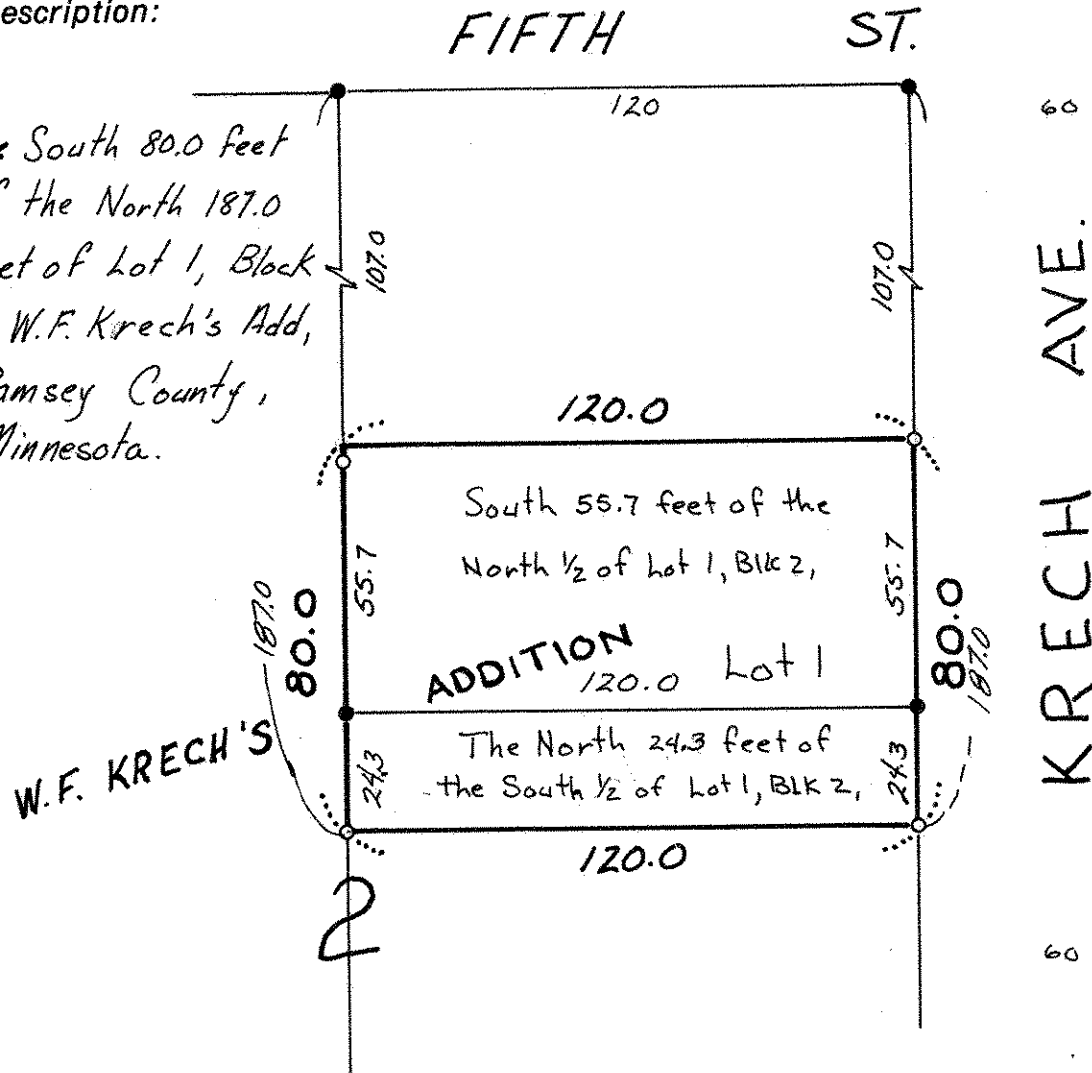 escription:
FIFTH ST.
120
60
South 80.0 feet
the North 187.0
et of Lot 1, Block
W.F. Krech's Add,
amsey County,
Minnesota.
107.0
107.0
KRECH AVE.
120.0
South 55.7 feet of the
North 1/2 of Lot 1, Blk 2,
55.7
55.7
187.0
80.0
80.0
187.0
ADDITION
120.0 Lot 1
W.F. KRECH'S
The North 24.3 feet of
the South 1/2 of Lot 1, BLK 2,
24.3
24.3
120.0
2
60